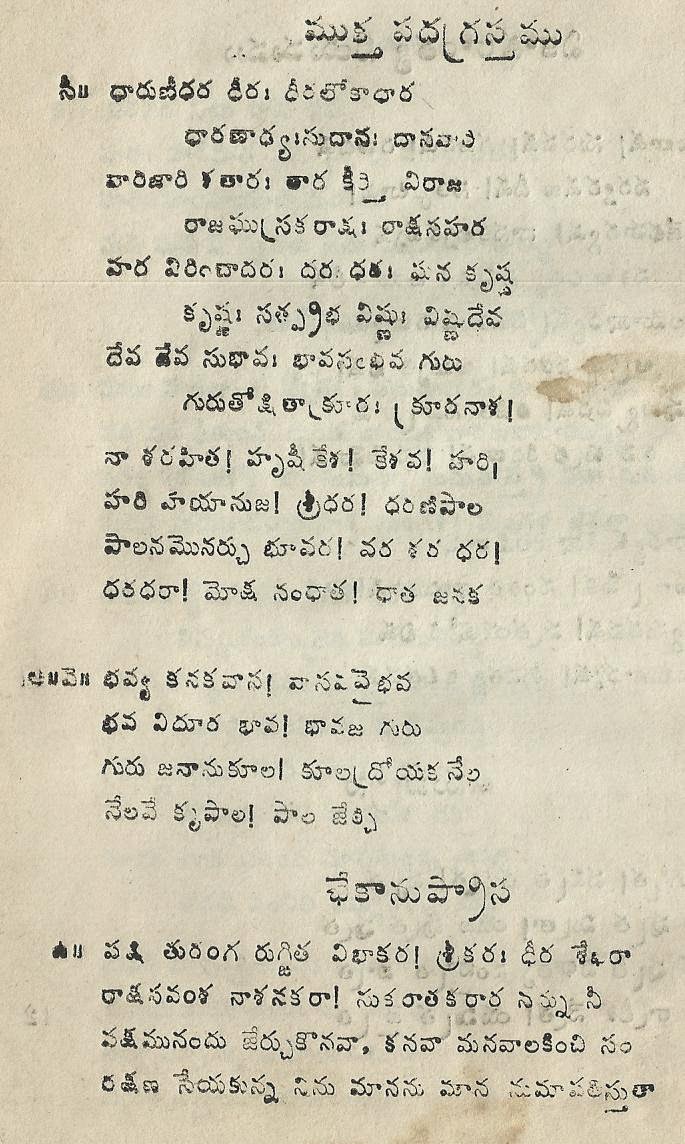 ముక్త పదగ్రస్తము
సీ॥ ధారుణీధర ధీరః ధీరలోకాధార
ధారణాధ్యఃసుదానః దానవారి
వారిజారి శతారః తార కీర్తి విరాజ
రాజఘుస్రకరాక్షః రాక్షసహర
హర విరించాదరః దర ధరః ఘన కృష్ణ
కృష్ణః సత్ప్రభ విష్ణుః విష్ణుదేవ
దేవ దేవ సుభావః భావసంభవ గురు
గురుతోక్షితాక్రూరః క్రూరనాశ!
నా శరహిత! హృషీకేశ! కేశవ! హరి,
హరి హయానుజ! శ్రీధర! ధరణిపాల
పాలనమొనర్చు భూవర! వర శర ధర!
ధరధరా! మోక్ష సంధాత! ధాత జనక
ఆ॥వె॥ భవ్య కనకవాస! వాసవవైభవ
భవ విదూర భావ! భావజ గురు
గురు జనానుకూల! కూలద్రోయక నేల
నేలవే కృపాల! పాల జేర్చి
ఛేకానుప్రాస
ఉ॥ పక్షి తురంగ రుగ్జిత విభాకర! శ్రీకరః ధీర శేఖరా
రాక్షసవంశ నాశనకరా! సుకరాతకరార నన్ను నీ
పక్షమునందు జేర్చుకొనవా, కనవా మనవాలకించి సం
రక్షణ సేయకున్న నిను మానను మాన నుమాపతిస్తుతా